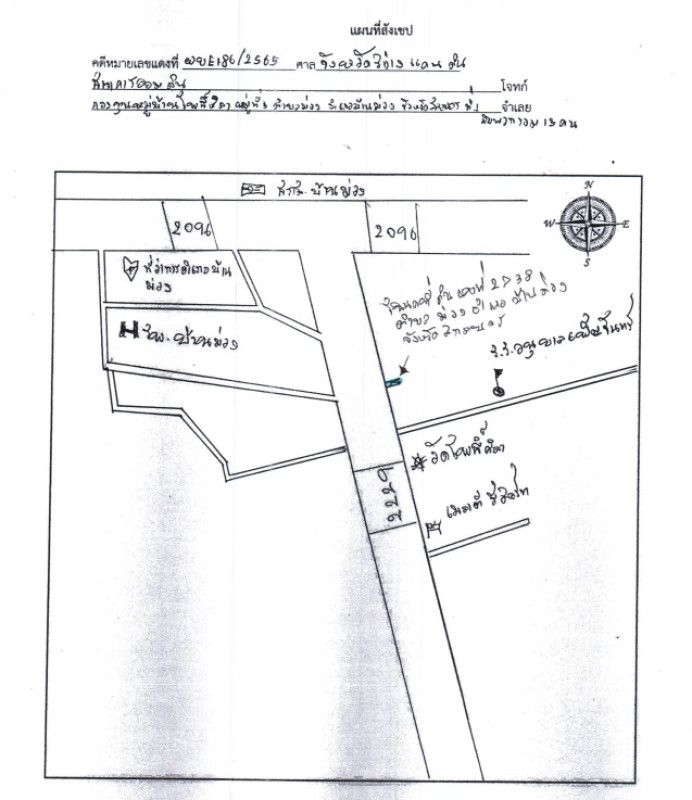 แผนที่สังเขป
คดีหมายเลขแดงที่ ผบE186/2565 ศาล จังหวัดสว่างแดนดิน
ธนาคารออมสิน โจทก์
กองทุนหมู่บ้านโพธิ์ศิลา หมู่ที่ ตำบลม่วง อำเภอบ้านม่วง จังหวัดสกลนคร ที่1 จำเลย
กับพวกรวม 13 คน
สภ.บ้านม่วง
N
W E
S
2096 2096
ที่ว่าการอำเภอบ้าน
ม่วง
โฉนดที่ดินเลขที่ 2738
ตำบลม่วง อำเภอบ้านม่วง
จังหวัดสกลนคร
รพ.บ้านม่วง
ร.ร.อนุบาล
วัดโพธิ์ศิลา
2229